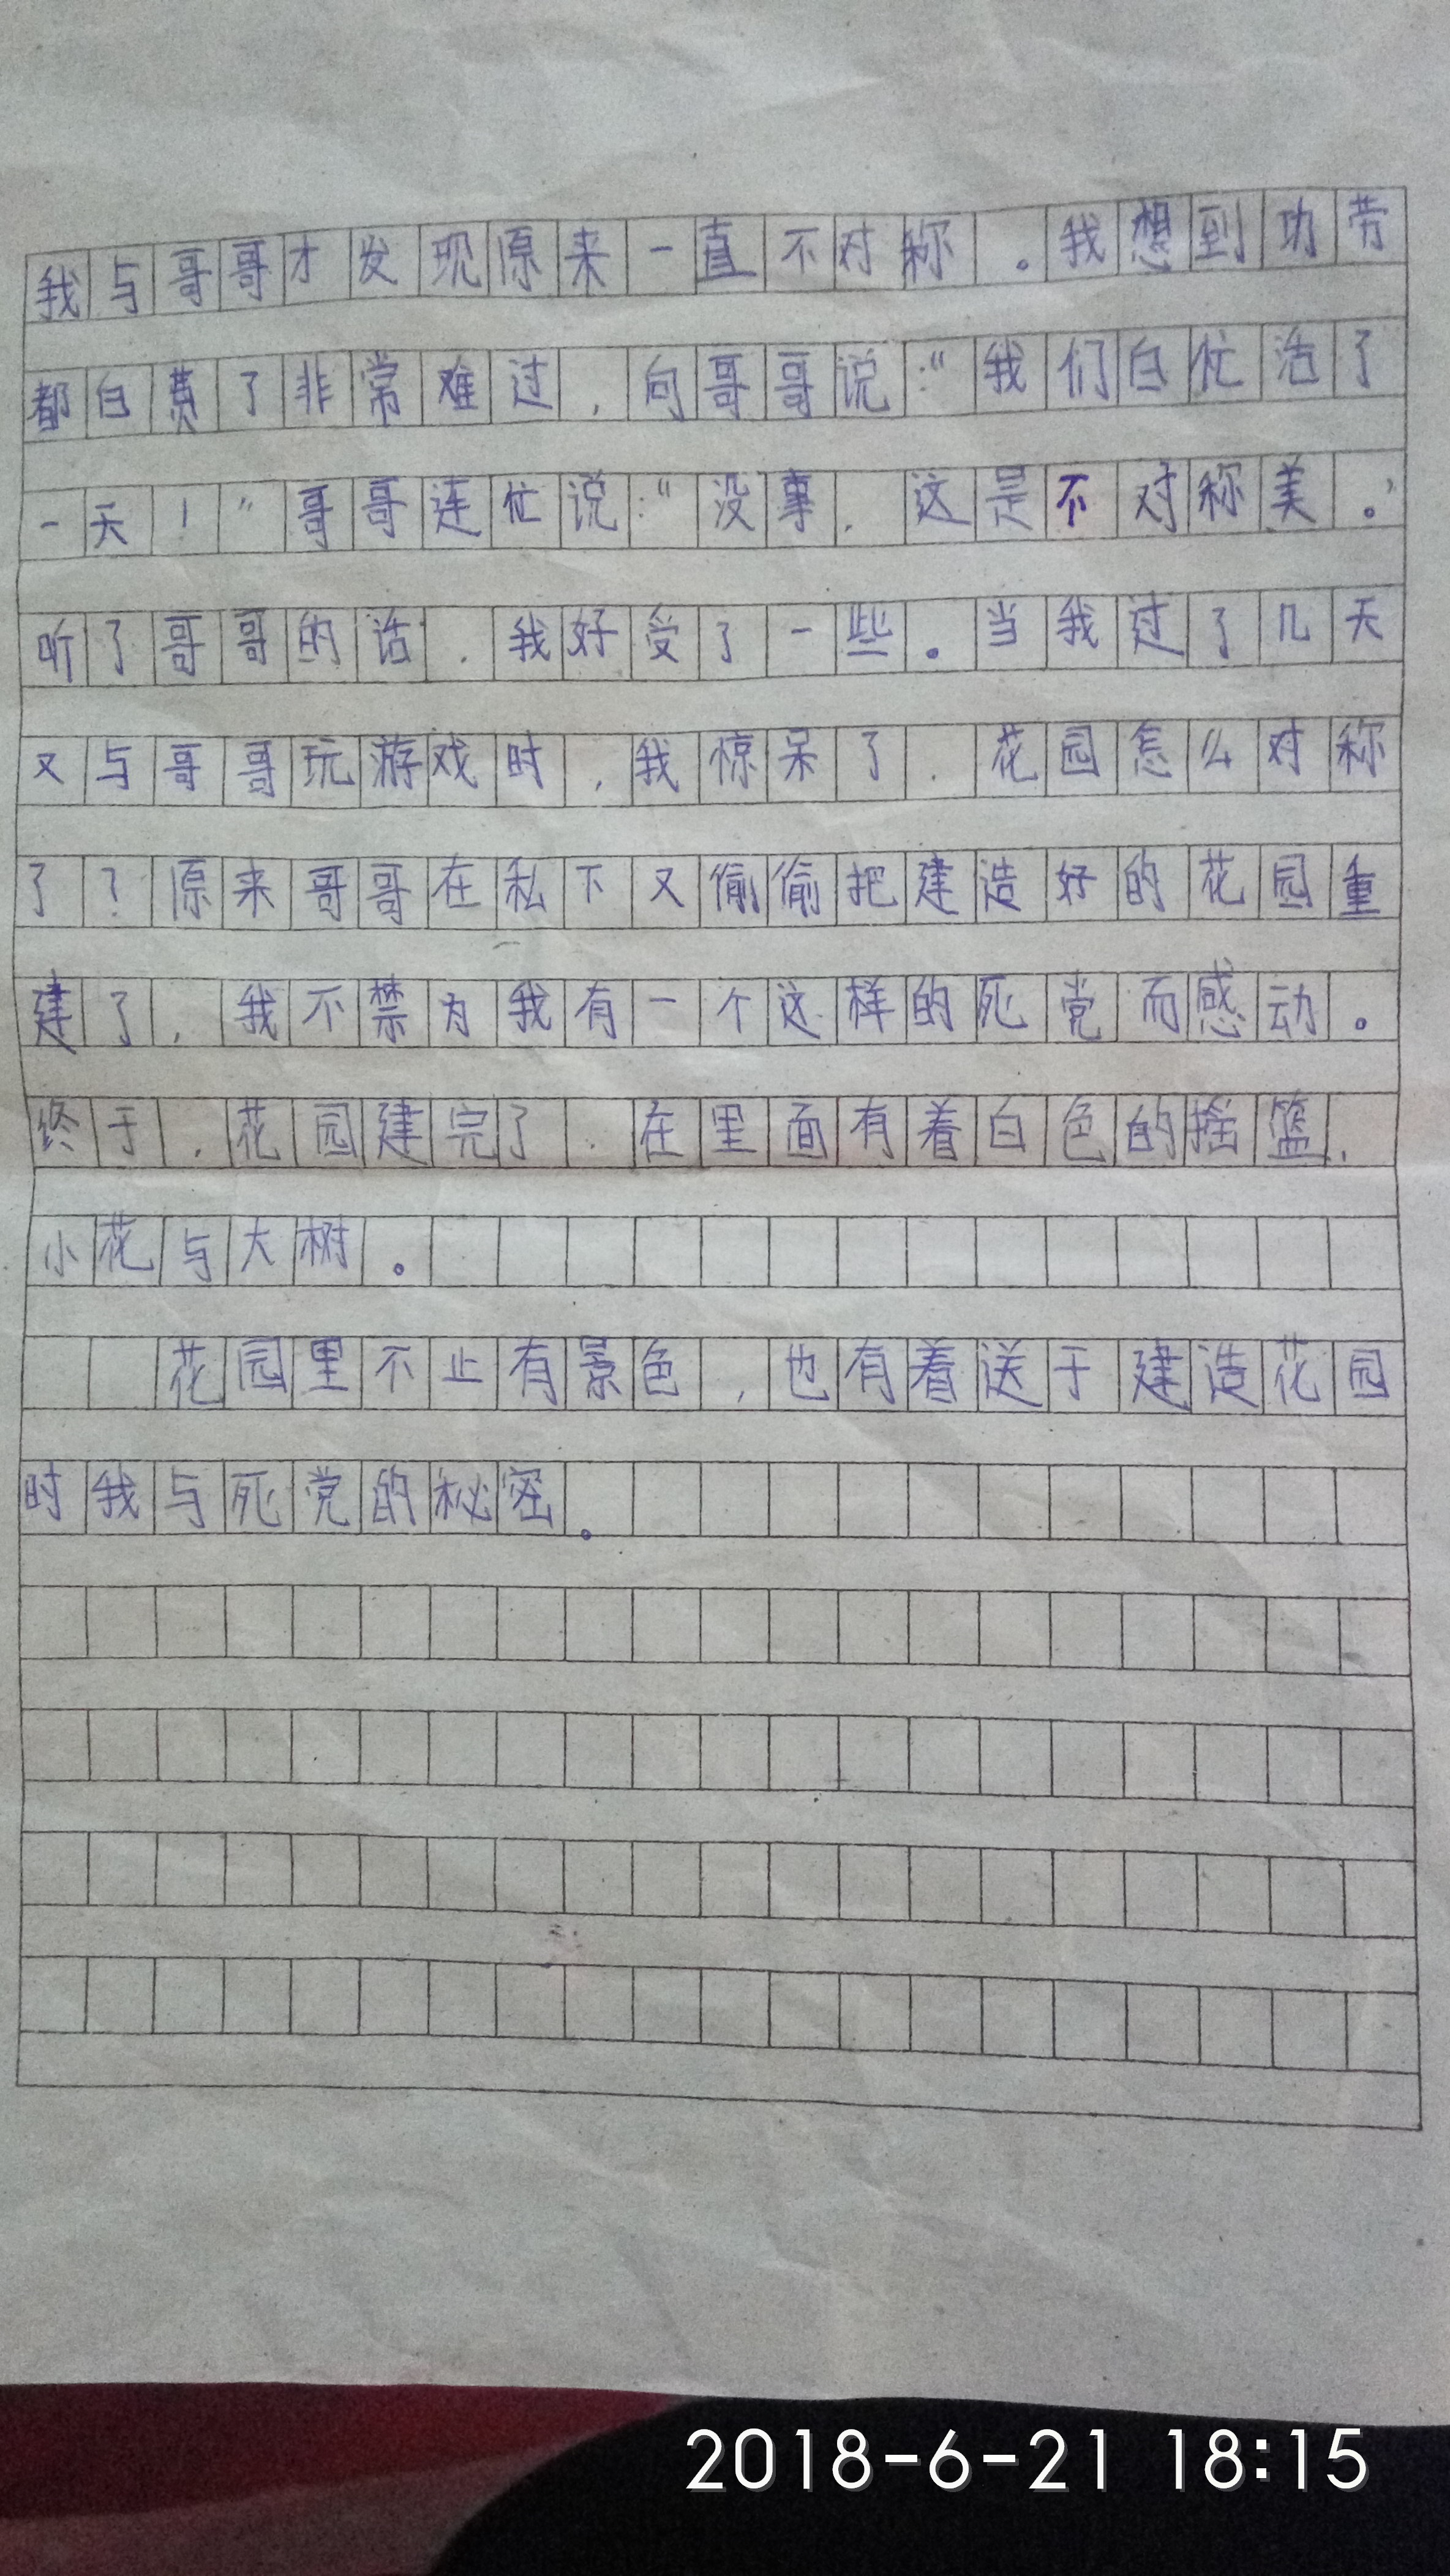 我与哥哥才发现原来一直不对称。我想到功劳
都白费了非常难过,向哥哥说:“我们白忙活了
一天!”哥哥连忙说:“没事,这是不对称美。”
听了哥哥的话,我好受了一些。当我过了几天
又与哥哥玩游戏时,我惊呆了,花园怎么对称
了?原来哥哥在私下又偷偷把建造好的花园重
建了,我不禁为我有一个这样的死党而感动。
终于,花园建完了,在里面有着白色的摇篮,
小花与大树。
花园里不止有景色,也有着送于建造花园
时我与死党的秘密。
2018-6-21 18:15